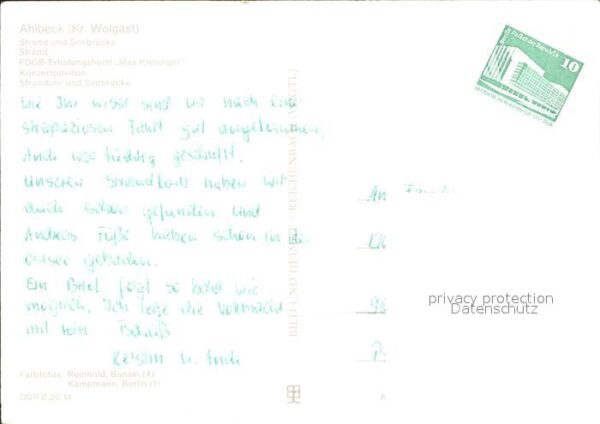 Ahlbeck (Kr. Wolgast)
Strand und Seebrücke
Strand
FDGB-Erholungsheim „Max Kreuziger"
Konzertpavillon
Strandufer und Seebrücke
Wie Ihr wißt sind wir nach einer
strapaziösen Fahrt gut angekommen,
Auch was tüchtig geschafft.
Unseren Strandkorb haben wir
auch schon gefunden und
Andreas Füße haben schon in der
Ostsee gebadet.
Ein Brief folgt so bald wie
möglich. Ich lege die Vollmacht
mit rein
u.
Farbfotos: Reinhold, Bansin (4)
Kampmann, Berlin (1)
DDR 0,20 M
BILD UND HEIMAT REICHENBACH
Palast der Republik
10
An
privacy protection
Datenschutz